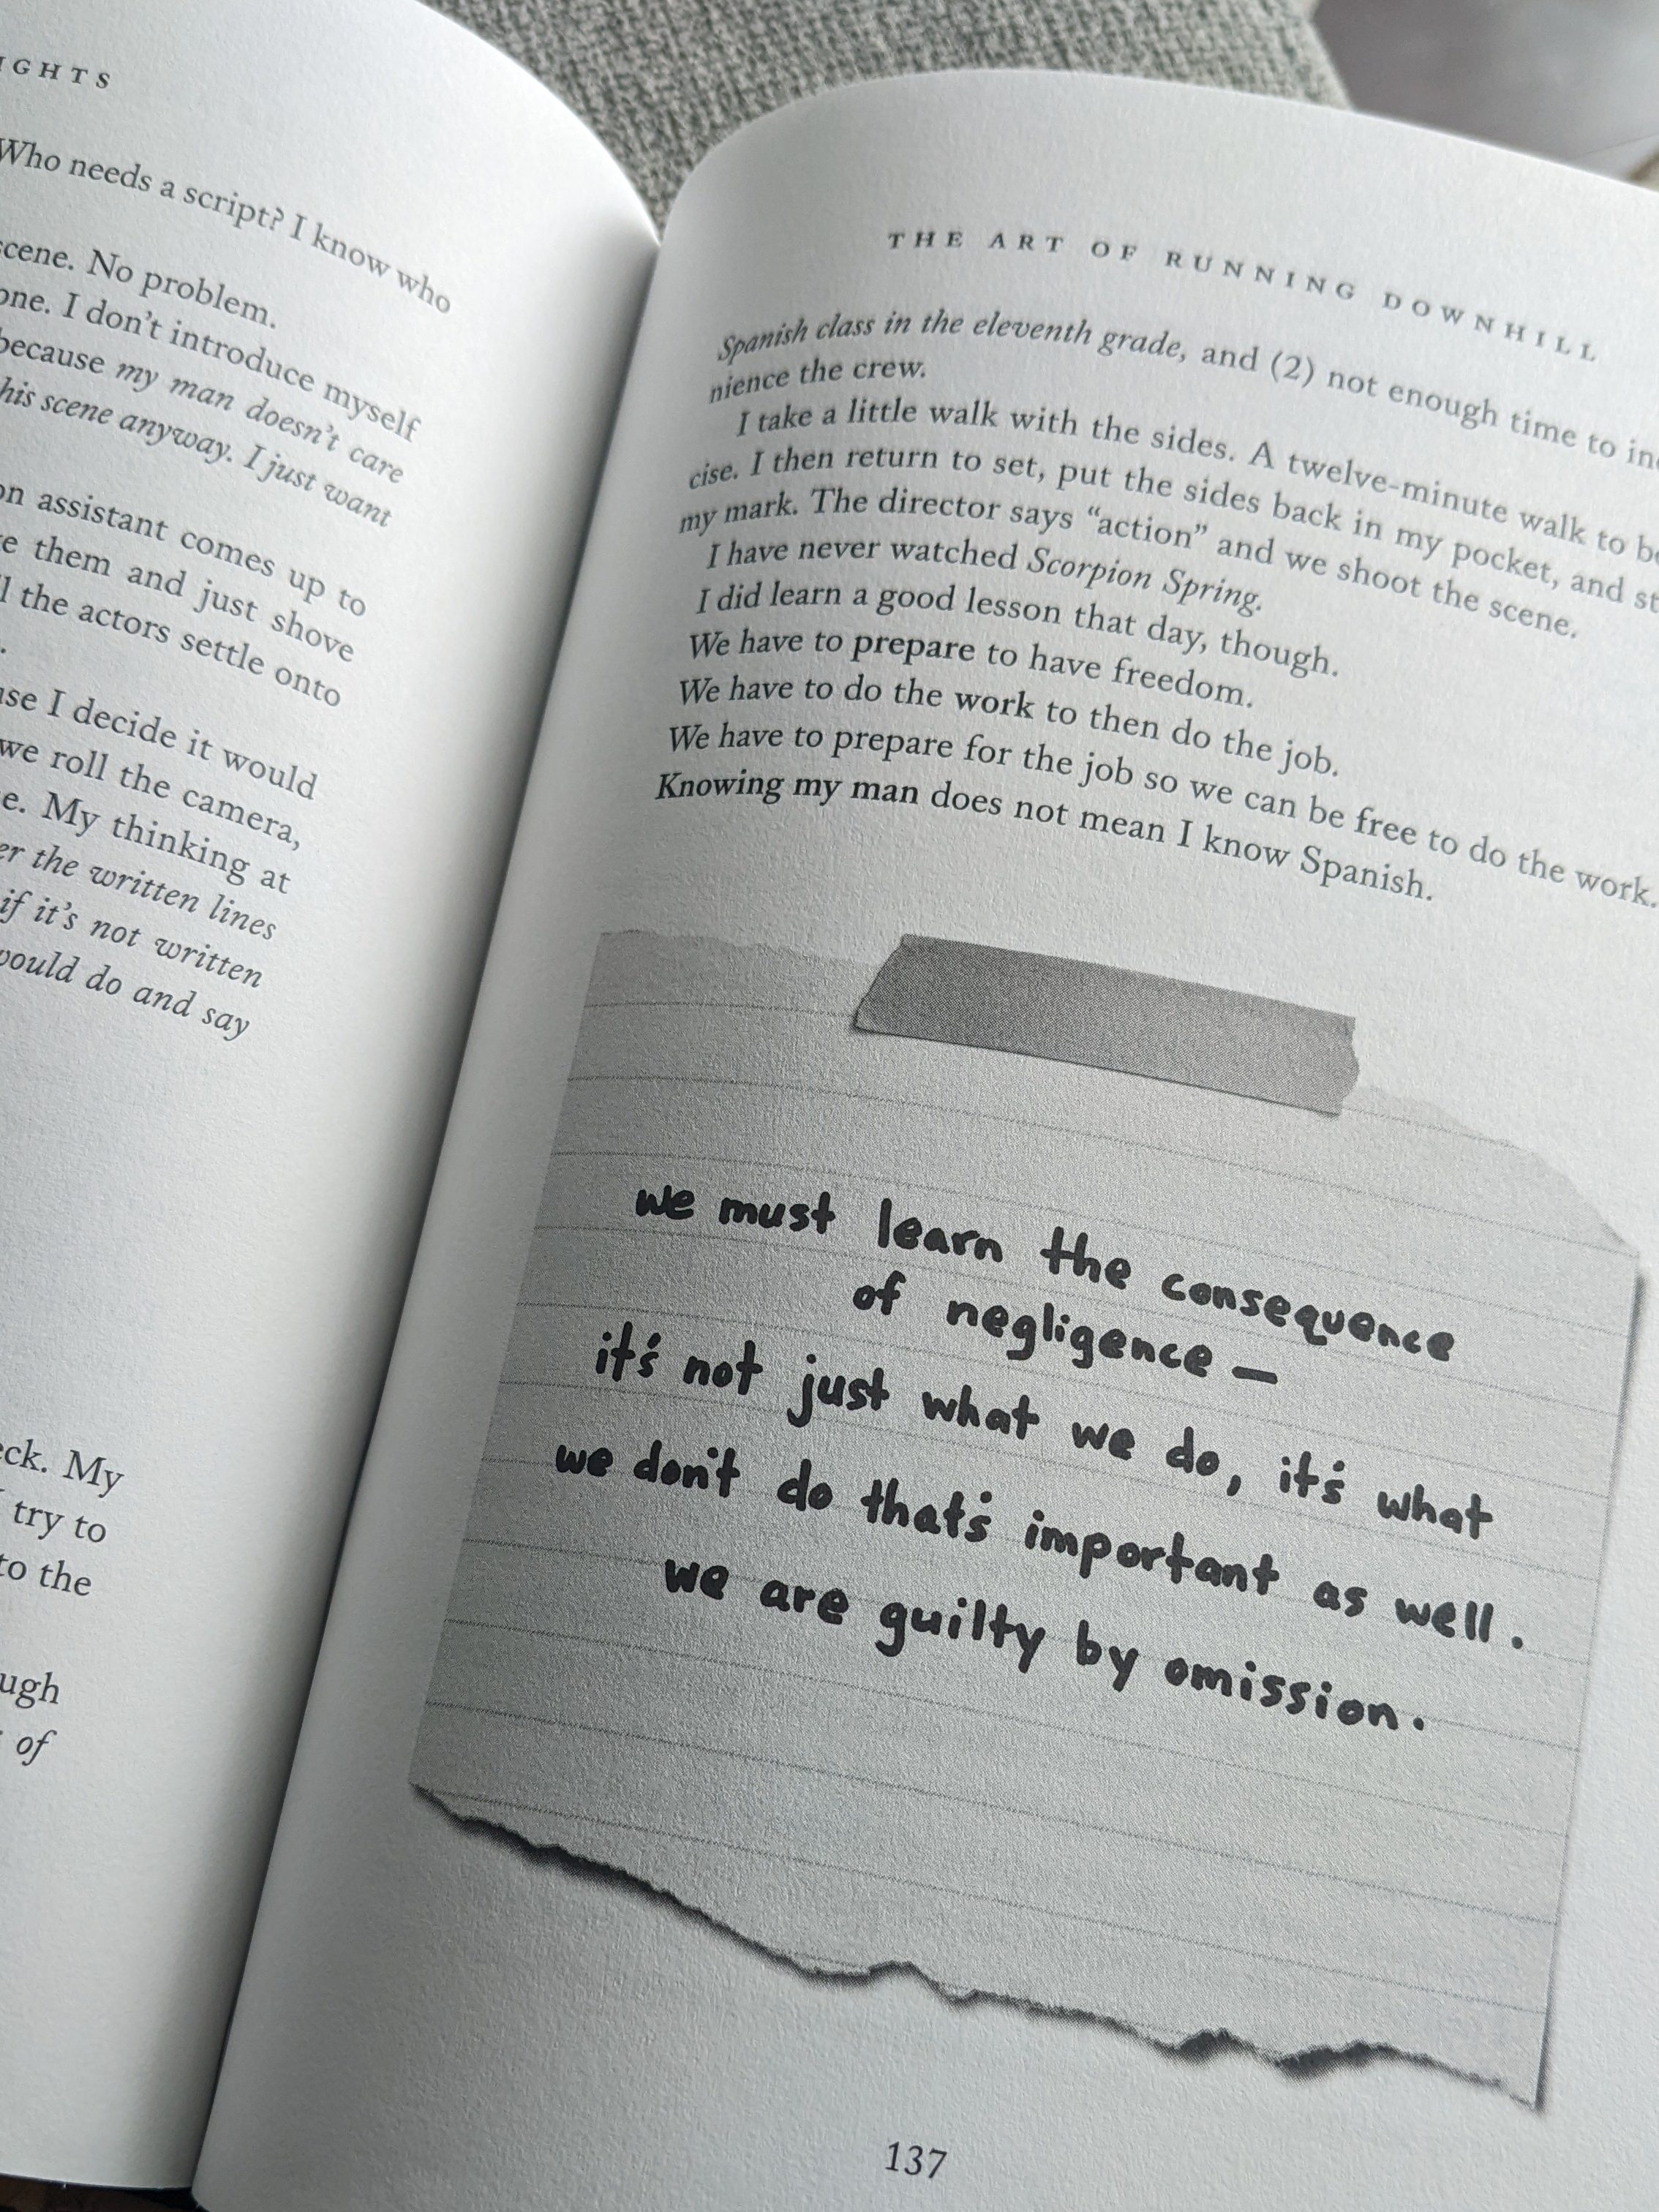 Who needs a script? I know who
scene. No problem.
I don't introduce myself
because my man doesn't care
his scene anyway. I just want
assistant comes up to
them and just shove
the actors settle onto
I decide it would
we roll the camera,
My thinking at
the written lines
if it's not written
would do and say
My
try to
to the
of
THE ART OF RUNNING DOWNHILL
Spanish class in the eleventh grade, and (2) not enough time to
nience the crew.
I take a little walk with the sides. A twelve-minute walk to
cise. I then return to set, put the sides back in my pocket, and
my mark. The director says “action” and we shoot the scene.
I have never watched Scorpion Spring.
I did learn a good lesson that day, though.
We have to prepare to have freedom.
We have to do the work to then do the job.
We have to prepare for the job so we can be free to do the work.
Knowing my man does not mean I know Spanish.
we must learn the consequence
of negligence —
it's not just what we do, it's what
we don't do that's important as well.
we are guilty by omission.
137